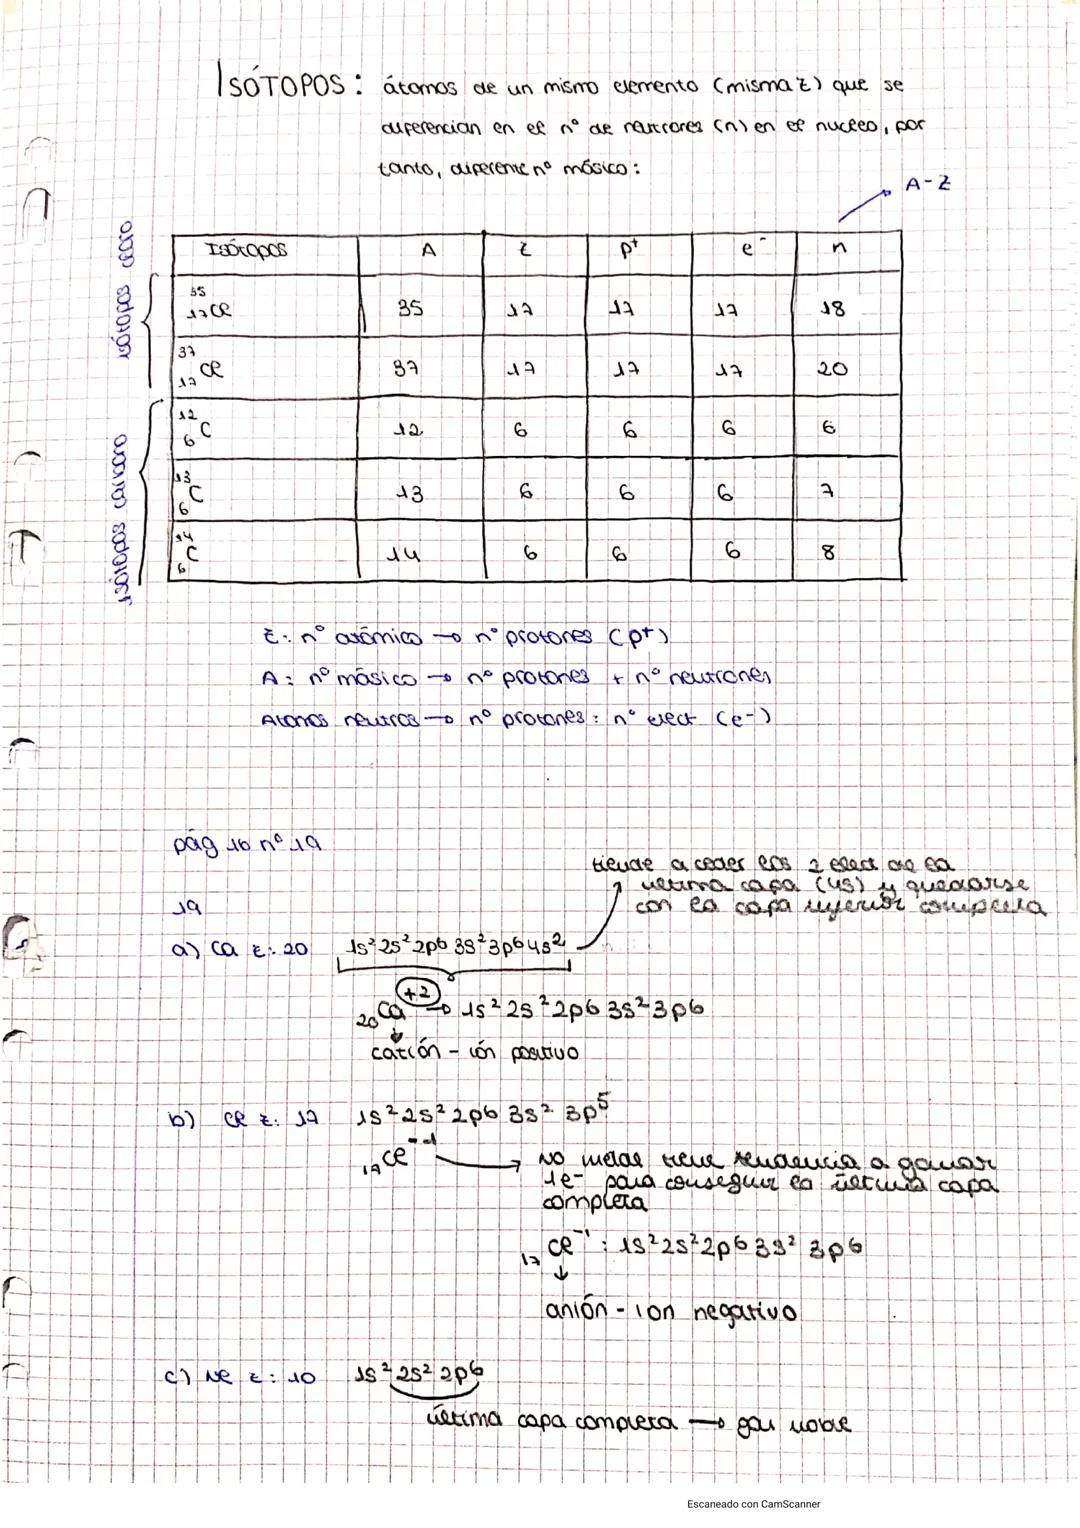 ISÓTOPOS: átomos de un mismo elemento (misma z) que se
diferencian en el nº de neutrones (n) en el nucleo, por
tanto, diferente nº másico:
A-Z
Isótopos A z p+ e- n
isótopos cloro
35 17 Cl 35 17 17 17 18
37 17 Cl 37 17 17 17 20
isótopos carbono
12 6 C 12 6 6 6 6
13 6 C 13 6 6 6 7
14 6 C 14 6 6 6 8
z: nº atómico → nº protones (p+)
A: nº másico → nº protones + nº neutrones
Atomos neutros → nº protones: nº elect (e-)
pág 16 nº 19
tiende a ceder los 2 elect de la
última capa (4s) y quedarse
con la capa inferior completa
19
a) Ca z: 20 1s² 2s² 2p6 3s² 3p6 4s²
20 Ca +2 → 1s² 2s² 2p6 3s² 3p6
catión - ión positivo
b) Cl z: 17 1s² 2s² 2p6 3s² 3p5
17 Cl -1 → No metal tiene tendencia a ganar
1e- para conseguir la última capa
completa
17 Cl -1 : 1s² 2s² 2p6 3s² 3p6
anión - ion negativo
c) Ne z: 10 1s² 2s² 2p6
última capa completa → gas noble
Escaneado con CamScanner